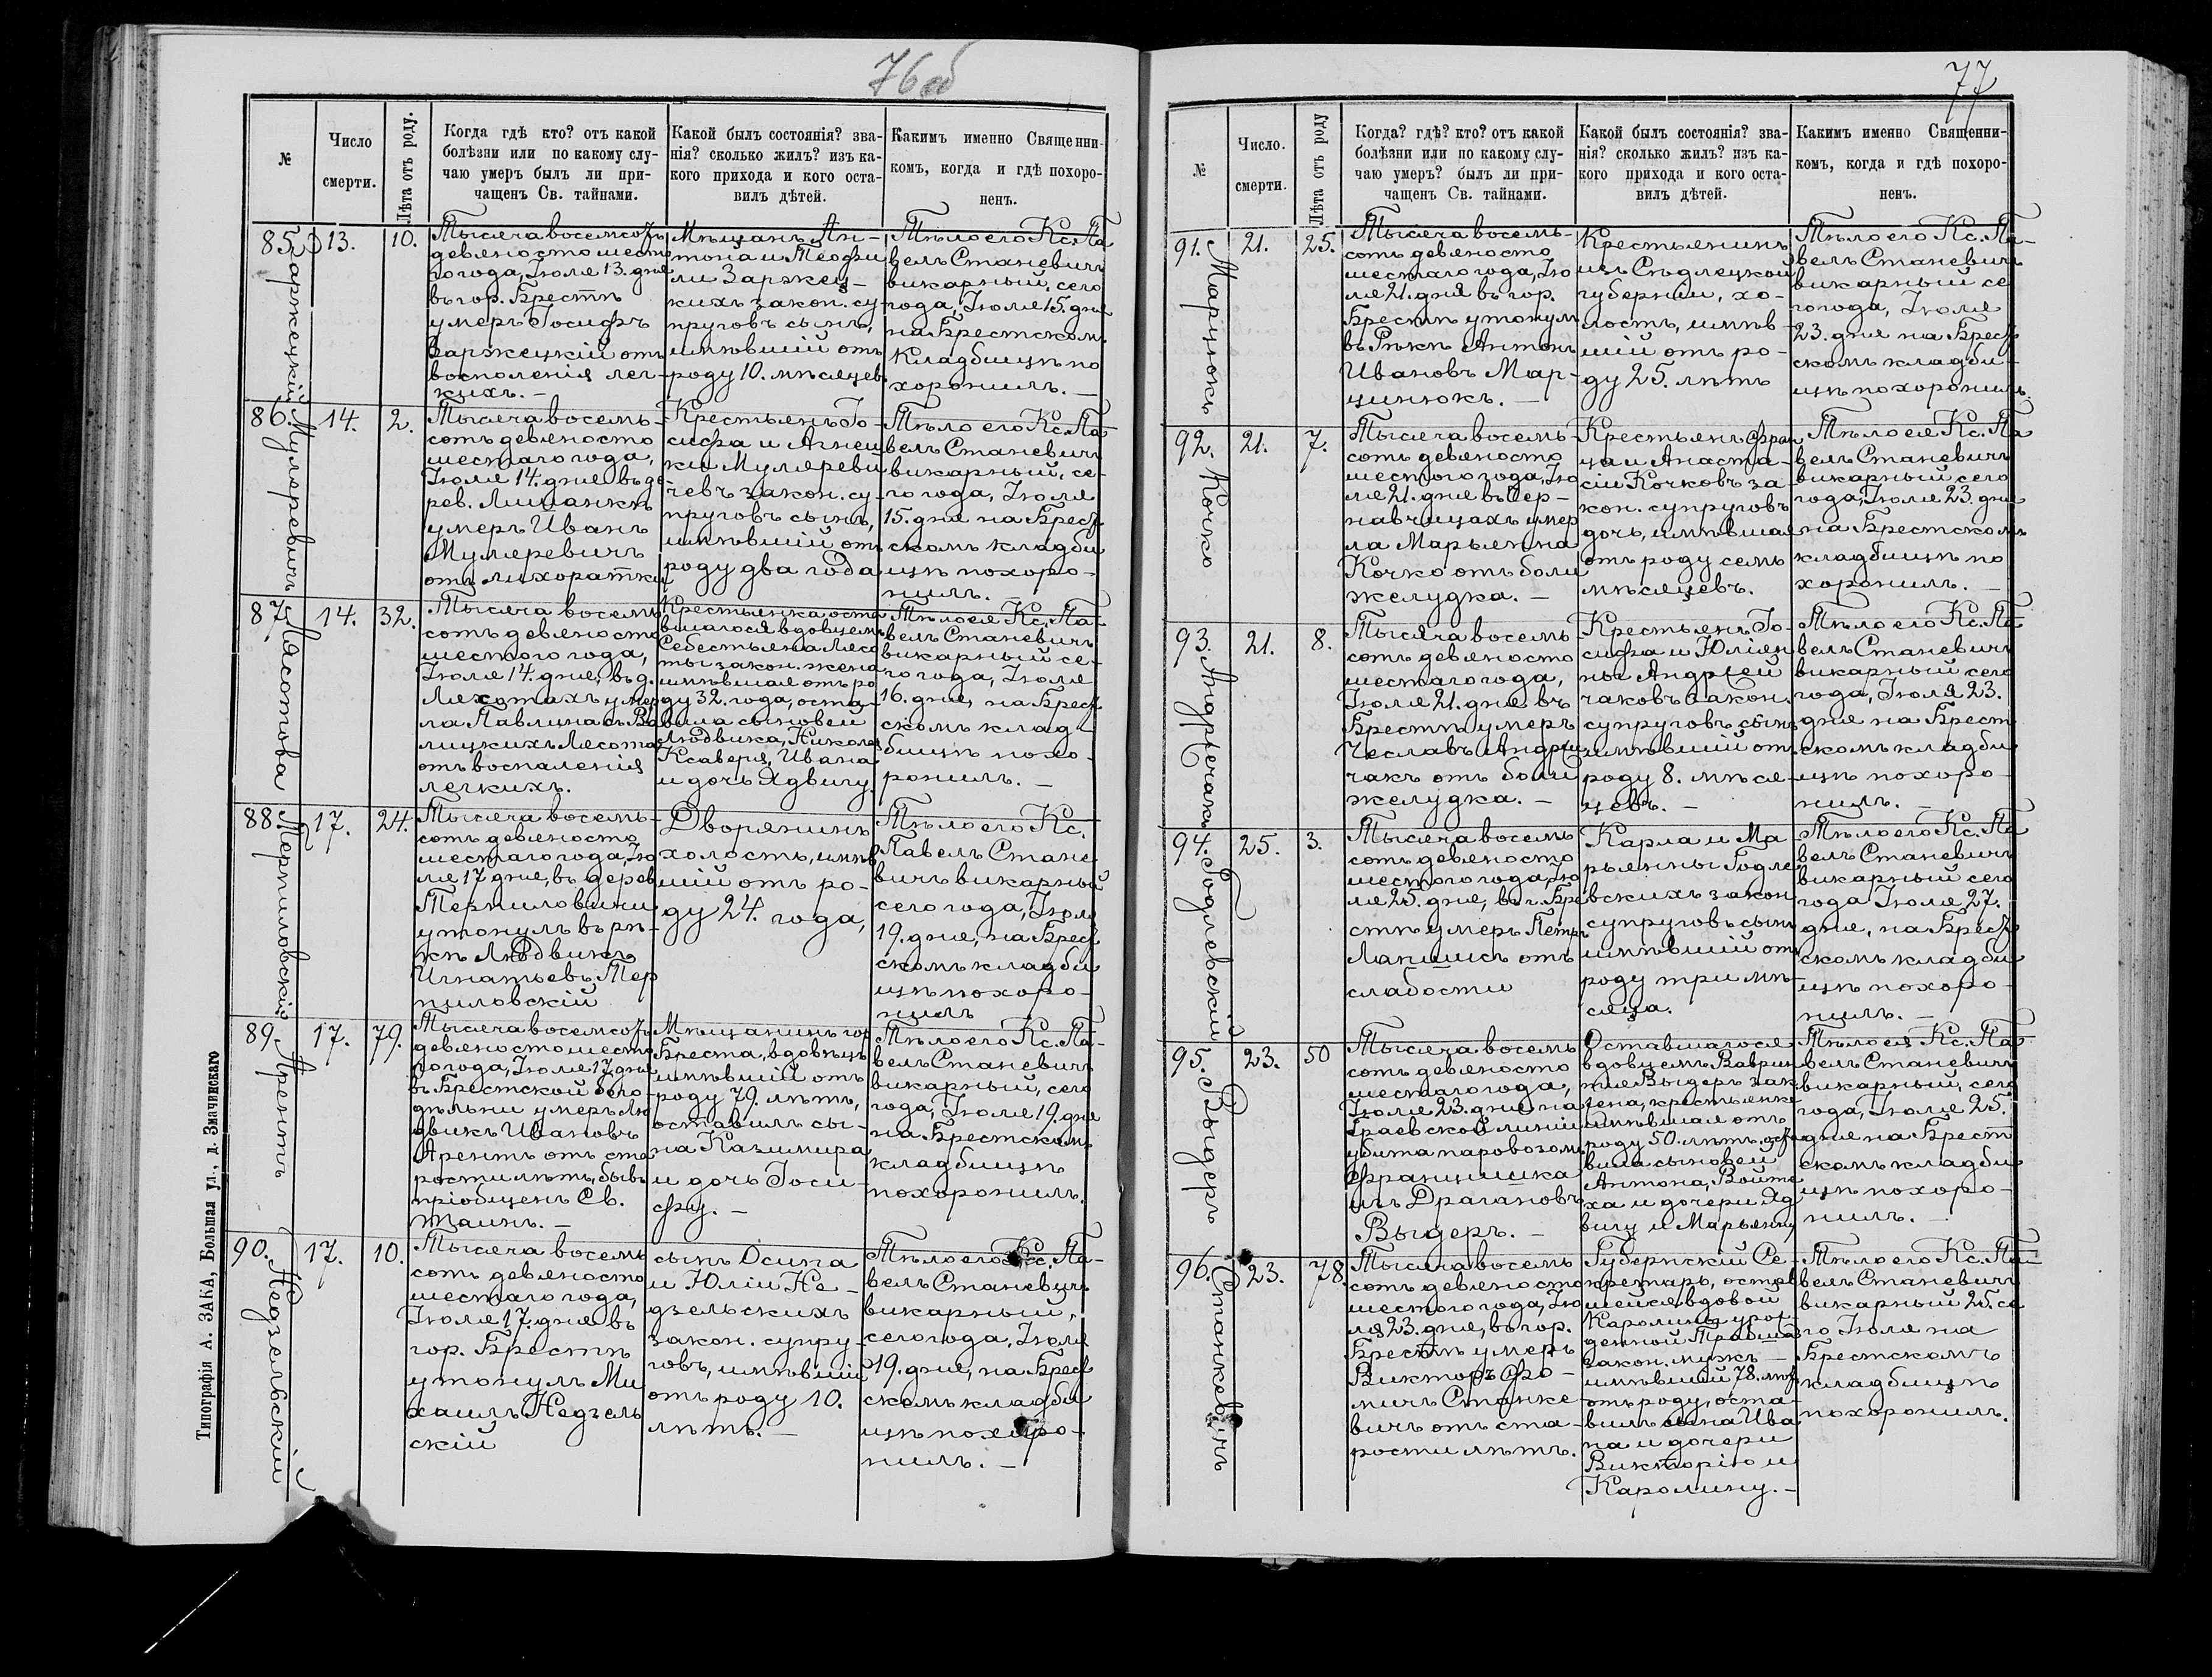 76об
№
Число
смерти.
Лѣта отъ роду.
Когда гдѣ кто? отъ какой
болѣзни или по какому слу-
чаю умеръ былъ ли при-
чащенъ Св. тайнами.
Какой былъ состоянія? зва-
нія? сколько жилъ? изъ ка-
кого прихода и кого оста-
вилъ дѣтей.
Какимъ именно Священни-
комъ, когда и гдѣ похоро-
ненъ.
85.
Заржецкій
13.
10.
Тысяча восемсотъ
девяносто шеста
го года, Іюля 13. дня
въ гор. Брестѣ
умеръ Іосифъ
Заржецкій отъ
восполенія лег-
кихъ. –
Мѣщанъ Ан-
тона и Теофи
ли Заржец-
кихъ закон. су-
пруговъ сынъ,
имѣвшій отъ
роду 10. мѣсяцев.
Тѣло его Кс. Па
велъ Станевичъ
викарный, сего
года, Іюля 15. дня
на Брестском.
кладбищѣ по
хоронилъ. –
86.
Муляревичъ
14.
2.
Тысяча восемь-
сотъ девяносто
шестаго года,
Іюля 14. дня въ де
рев. Лищанкѣ
умеръ Иванъ
Муляревичъ
отъ лихоратки
Крестьянъ Іо-
сифа и Агнеш
ки Муляреви
чевъ закон. су-
пруговъ сынъ,
имѣвшій отъ
роду два года
Тѣло его Кс. Па
велъ Станевичъ
викарный, се-
го года, Іюля
15. дня на Брест
скомъ кладби
щѣ похоро-
нилъ. –
87.
Лясотова
14.
32.
Тысяча восемь
сотъ девяносто
шестого года,
Іюля 14. дня, въ д.
Ляхотахъ умер
ла Павлина съ Ва
лицкихъ Лясота
отъ воспаленія
легкихъ.
Крестьянка оста
вшагося вдовцемъ
Себестьяна Лясо
ты закон. жена
имѣвшая отъ ро
ду 32. года, оста-
вила сыновей
Людвика, Никола
Ксаверія, Ивана
и дочь Ядвигу.
Тѣло ея Кс. Па-
велъ Станевичъ
викарный се-
го года, Іюля
16. дня, на Брест
скомъ клад-
бищѣ похо-
ронилъ. –
88.
Терпиловскій
17.
24.
Тысяча восемь-
сотъ девяносто
шестаго года, Ію
ля 17. дня, въ дерев
Терпиловичи
утонулъ въ рѣ-
кѣ Людвикъ
Игнатьевъ Тер
пиловскій
Дворянинъ
холостъ, имѣв
шій отъ ро-
ду 24. года,
Тѣло его Кс.
Павелъ Стане
вичъ викарный
сего года, Іюля
19. дня, на Брест
скомъ кладби
щѣ похоро-
нилъ
89.
Арентъ
17.
79.
Тысяча восемсотъ
девяносто шеста
го года, Іюля 17. дня
въ Брестской бого
дѣльни умеръ Лю
двикъ Ивановъ
Арентъ отъ ста
рости лѣтъ, бывъ
пріобщенъ Св.
Таинъ. –
Мѣщанинъ гор.
Бреста, вдовецъ
имѣвшій отъ
роду 79. лѣтъ,
оставилъ сы-
на Казимира
и дочь Іоси-
фу. –
Тѣло его Кс. Па-
велъ Станевичъ
викарный, сего
года, Іюля 19. дня
на Брестскомъ
кладбищѣ
похоронилъ.
90.
Недзельскій
17.
10.
Тысяча восемь
сотъ девяносто
шестаго года,
Іюля 17. дня въ
гор. Брестѣ
утонулъ Ми
хаилъ Недзель
скій
сынъ Осипа
и Юліи Не-
дзельскихъ
закон. супру-
говъ, имѣвшій
отъ роду 10.
лѣтъ. –
Тѣло его Кс. Па-
велъ Станевичъ
викарный,
сего года, Іюля
19. дня, на Брест
скомъ кладби
щѣ похоро-
нилъ. –
Типографія А. ЗАКА, Большая ул., д. Змачинскаго
77
№
Число.
смерти.
Лѣта отъ роду
Когда? гдѣ? кто? отъ какой
болѣзни или по какому слу-
чаю умеръ? былъ ли при-
чащенъ Св. тайнами.
Какой былъ состоянія? зва-
нія? сколько жилъ? изъ ка-
кого прихода и кого оста-
вилъ дѣтей.
Какимъ именно Священни-
комъ, когда и гдѣ похоро-
ненъ.
91.
Марцинюкъ
21.
25.
Тысяча восемь-
сотъ девяносто
шестаго года, Ію
ля 21. дня въ гор.
Брестѣ утонулъ
въ Рѣкѣ Антонъ
Ивановъ Мар-
цинюкъ. –
Крестьянинъ
изъ Сѣдлецкой
губерніи, хо-
лостъ, имѣв-
шій отъ ро-
ду 25. лѣтъ
Тѣло его Кс. Па-
велъ Станевичъ
викарный се
го года, Іюля
23. дня на Брест
скомъ кладби-
щѣ похоронилъ.
92.
Кочко
21.
7.
Тысяча восемь-
сотъ девяносто
шестого года, Ію
ля 21. дня въ Чер-
навчицахъ умер
ла Марьянна
Кочко отъ боли
желудка. –
Крестьянъ Фран
ца и Анаста-
сіи Кочковъ за-
кон. супруговъ
дочь, имѣвшая
отъ роду семь
мѣсяцевъ.
Тѣло ея Кс. Па
велъ Станевичъ
викарный сего
года, Іюля 23. дня
на Брестскомъ
кладбищѣ по
хоронилъ. –
93.
Андрейчакъ
21.
8.
Тысяча восемь
сотъ девяносто
шестаго года,
Іюля 21. дня въ
Брестѣ умеръ
Чеславъ Андрей
чакъ отъ боли
желудка. –
Крестьянъ Іо-
сифа и Юліян
ны Андрей
чаковъ закон.
супруговъ сынъ
имѣвшій отъ
роду 8. мѣся-
цевъ. –
Тѣло его Кс. Па
велъ Станевичъ
викарный сего
года, Іюля 23.
дня на Брест
скомъ кладби
щѣ похоро-
нилъ. –
94.
Годлевскій
25.
3.
Тысяча восемь
сотъ девяносто
шестого года, Ію
ля 25. дня, въ г. Бре
стѣ умеръ Петръ
отъ
слабости
Карла и Ма
рьянны Годле
вскихъ закон
супруговъ сынъ
имѣвшій отъ
роду три мѣ-
сяца.
Тѣло его Кс. Па
велъ Станевичъ
викарный сего
года Іюля 27.
дня, на Брест
скомъ кладби
щѣ похоро-
нилъ. –
95.
Выдеръ
23.
50
Тысяча восемь
сотъ девяносто
шестаго года,
Іюля 23. дня на
Граевской линіи
убита паровозомъ
Францишка
изъ Драгановъ
Выдеръ. –
Оставшагося
вдовцемъ Ваврин
тія Выдеръ зак.
жена, крестьянка
имѣвшая отъ
роду 50. лѣтъ, оста
вила сыновей
Антона, Войте
ха и дочери Яд
вигу и Марьянну
Тѣло ея Кс. Па
велъ Станевичъ
викарный, сего
года, Іюля 25.
дня на Брест
скомъ кладби
щѣ похоро-
нилъ. –
96.
Станкевичъ
23.
78.
Тысяча восемь
сотъ девяносто
шестого года, Ію
ля 23. дня, въ гор.
Брестѣ умеръ
Викторъ Фо-
мичъ Станке
вичъ отъ ста-
рости лѣтъ.
Губернскій Се-
кретарь, остав
шейся вдовой
Каролины урож
денной
закон. мужъ –
имѣвшій 78. лѣтъ
отъ роду, оста-
вилъ сына Ива
на и дочери
Викторію и
Каролину. –
Тѣло его Кс. Па
велъ Станевичъ
викарный 25. се
го Іюля на
Брестскомъ
кладбищѣ
похоронилъ.